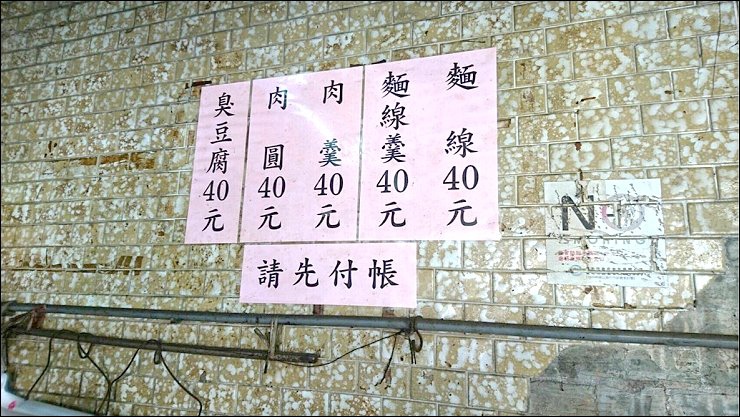 麵線40元
麵線羹40元
肉羹40元
肉圓40元
臭豆腐40元
請先付帳